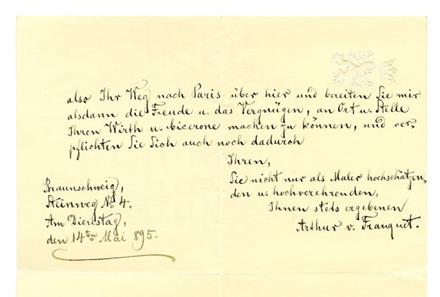 also Ihr Weg nach Paris über hier und bereiten Sie mir
alsdann die Freude u. das Vergnügen, an Ort u. Stelle
Ihren Wirth u. Cicerone machen zu können, und ver-
pflichten Sie Sich auch noch dadurch
Ihren,
Sie nicht nur als Maler hochschätzen-
den u. hochverehrenden,
Ihnen stets ergebenen
Arthur v. Franquet.
Braunschweig,
Steinweg No 4.
Am Dienstag,
den 14ten Mai 895.